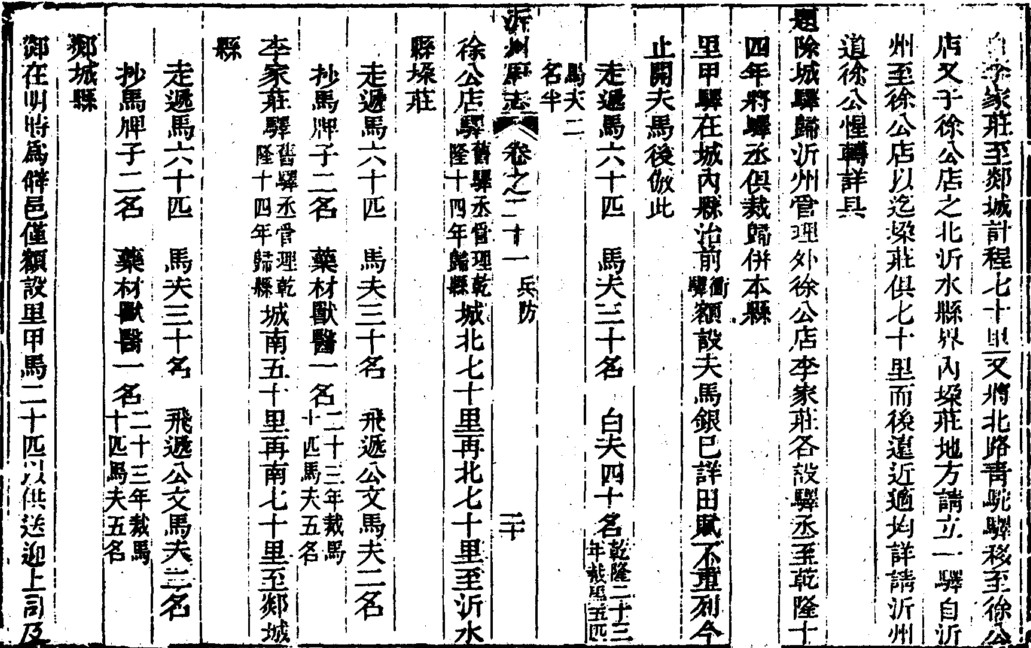 自李家莊至郯城計程七十里又將北路青駝驛移至徐公
店又于徐公店之北沂水縣界內垜莊地方請立一驛自沂
州至徐公店以迄垜莊俱七十里而後遠近適均詳請沂州
道徐公惺轉詳具
題除城驛歸沂州管理外徐公店李家莊各設驛丞至乾隆十
四年將驛丞俱裁歸併本縣
里甲驛在城內縣治前衝驛額設夫馬銀已詳田賦不重列今
止開夫馬後倣此
走遞馬六十匹 馬夫三十名 白夫四十名乾隆二十三年裁馬五匹
馬夫二名半
沂州府志 卷之二十一 兵防 二十
徐公店驛舊驛丞管理乾隆十四年歸縣城北七十里再北七十里至沂水
縣垜莊
走遞馬六十匹 馬夫三十名 飛遞公文馬夫二名
抄馬牌子二名 藥材獸醫一名二十三年裁馬十匹馬夫五名
李家莊驛舊驛丞管理乾隆十四年歸縣城南五十里再南七十里至郯城
縣
走遞馬六十匹 馬夫三十名 飛遞公文馬夫二名
抄馬牌子二名 藥材獸醫一名二十三年裁馬十匹馬夫五名
郯城縣
郯在明時為僻邑僅額設里甲馬二十匹以供送迎上司及